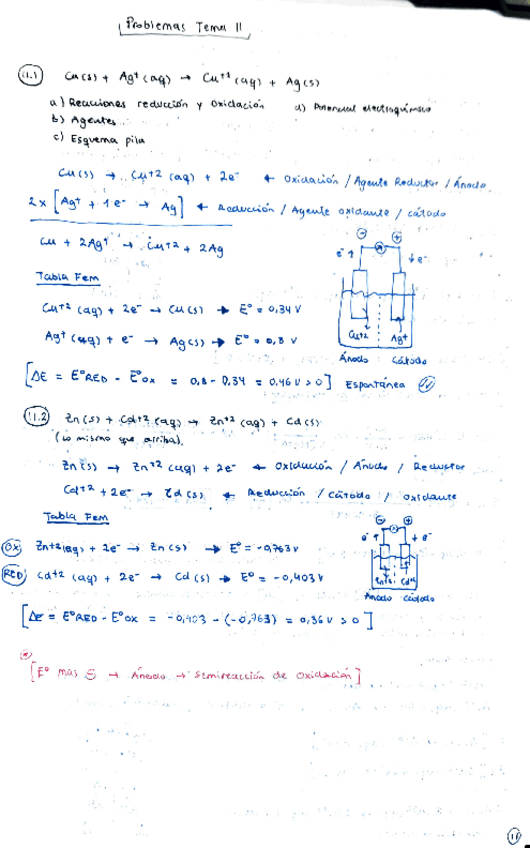 Problemas Tema 11
11.1 Cu(s) + Ag⁺(aq) → Cu⁺²(aq) + Ag(s)
a) Reacciones reducción y oxidación d) Potencial electroquímico
b) Agentes
c) Esquema pila
Cu(s) → Cu+2 (aq) + 2e⁻ ← Oxidación / Agente Reductor / Ánodo.
2 x [Ag⁺ + 1e⁻ → Ag] ← Reducción / Agente oxidante / cátodo
Cu + 2Ag⁺ → Cu+2 + 2Ag
⊖ ⊕
e⁻↑ ↓e⁻
Cu+2 Ag⁺
Ánodo Cátodo
Tabla Fem
Cu+2 (aq) + 2e⁻ → Cu(s) → E° = 0,34 V
Ag⁺ (aq) + e⁻ → Ag(s) → E° = 0,8 V
[ΔE = E°RED - E°OX = 0,8 - 0,34 = 0,46 V > 0] Espontánea
11.2 Zn(s) + Cd+2 (aq) → Zn+2 (aq) + Cd(s)
(Lo mismo que arriba).
Zn(s) → Zn+2 (aq) + 2e⁻ ← Oxidación / Ánodo / Reductor
Cd+2 + 2e⁻ → Cd(s) ← Reducción / Cátodo / Oxidante
Tabla Fem
⊖ ⊕
e⁻↑ ↓e⁻
Zn+2 Cd+2
Ánodo Cátodo
OX Zn+2(aq) + 2e⁻ → Zn(s) → E° = -0,763 V
RED Cd+2 (aq) + 2e⁻ → Cd(s) → E° = -0,403 V
[ΔE = E°RED - E°OX = -0,403 - (-0,763) = 0,36 V > 0]
[E° mas ⊖ → Ánodo → Semireacción de Oxidación]